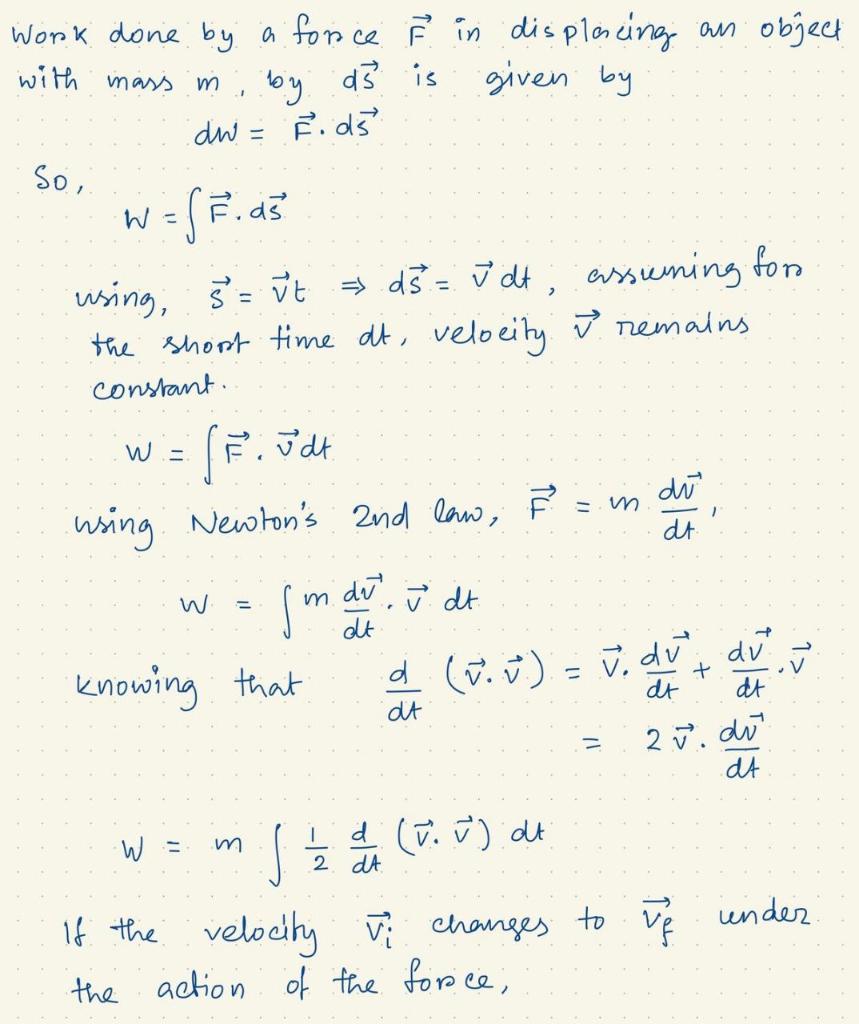 Work done by a force F⃗ in displacing an object
with mass m, by ds⃗ is given by
dW = F⃗. ds⃗
So,
W = ∫ F⃗. ds⃗
using, s⃗ = v⃗t ⇒ ds⃗ = v⃗ dt, assuming for
the short time dt, velocity v⃗ remains
constant.
W = ∫ F⃗. v⃗ dt
using Newton's 2nd law, F⃗ = m dv⃗/dt,
W = ∫ m dv⃗/dt. v⃗ dt
Knowing that d/dt (v⃗. v⃗) = v⃗. dv⃗/dt + dv⃗/dt. v⃗
= 2 v⃗. dv⃗/dt
W = m ∫ 1/2 d/dt (v⃗. v⃗) dt
If the velocity v⃗ᵢ changes to v⃗f under
the action of the force,